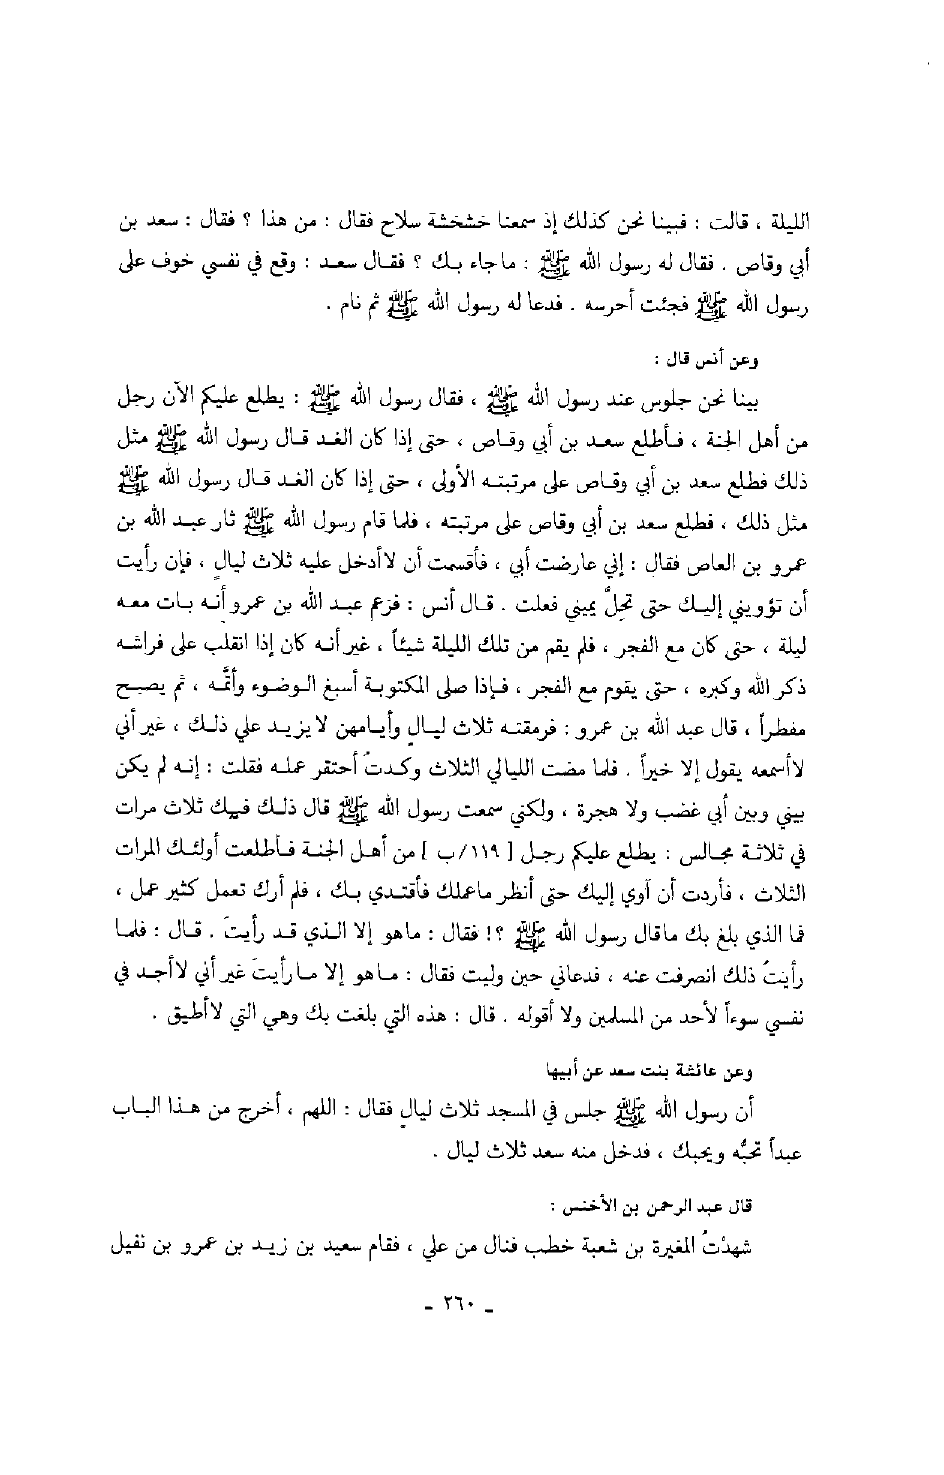 الليلة ، قالت : فبينا نحن كذلك إذ سمعنا خشخشة سلاح فقال : من هذا ؟ فقال : سعد بن
أبي وقاص . فقال له رسول الله ﷺ : ماجاء بك ؟ فقال سعد : وقع في نفسي خوف على
رسول الله ﷺ فجئت أحرسه . فدعا له رسول الله ﷺ ثم نام .
وعن أنس قال :
بينا نحن جلوس عند رسول الله ﷺ ، فقال رسول الله ﷺ : يطلع عليكم الآن رجل
من أهل الجنة ، فأطلع سعد بن أبي وقاص ، حتى إذا كان الغد قال رسول الله ﷺ مثل
ذلك فطلع سعد بن أبي وقاص على مرتبته الأولى ، حتى إذا كان الغد قال رسول الله ﷺ
مثل ذلك ، فطلع سعد بن أبي وقاص على مرتبته ، فلما قام رسول الله ﷺ ثار عبد الله بن
عمرو بن العاص فقال : إني عارضت أبي ، فأقسمت أن لاأدخل عليه ثلاث ليالٍ ، فإن رأيت
أن تؤويني إليك حتى تحلَّ يميني فعلت . قال أنس : فزعم عبد الله بن عمرو أنه بات معه
ليلة ، حتى كان مع الفجر ، فلم يقم من تلك الليلة شيئاً ، غير أنه كان إذا انقلب على فراشه
ذكر الله وكبره ، حتى يقوم مع الفجر ، فإذا صلى المكتوبة أسبغ الوضوء وأتمَّه ، ثم يصبح
مفطراً ، قال عبد الله بن عمرو : فرمقته ثلاث ليالٍ وأيامهن لا يزيد على ذلك ، غير أني
لاأسمعه يقول إلا خيراً . فلما مضت الليالي الثلاث وكدتُ أحتقر عمله فقلت : إنه لم يكن
بيني وبين أبي غضب ولا هجرة ، ولكني سمعت رسول الله ﷺ قال ذلك فيك ثلاث مرات
في ثلاثة مجالس : يطلع عليكم رجل [ ١١٩/ب ] من أهل الجنة فأطلعت أولئك المرات
الثلاث ، فأردت أن آوي إليك حتى أنظر ماعملك فأقتدي بك ، فلم أرك تعمل كثير عمل ،
فما الذي بلغ بك ماقال رسول الله ﷺ ؟! فقال : ماهو إلا الذي قد رأيتَ . قال : فلما
رأيتُ ذلك انصرفت عنه ، فدعاني حين وليت فقال : ماهو إلا ما رأيتَ غير أني لاأجد في
نفسي سوءاً لأحد من المسلمين ولا أقوله . قال : هذه التي بلغت بك وهي التي لاأطيق .
وعن عائشة بنت سعد عن أبيها
أن رسول الله ﷺ جلس في المسجد ثلاث ليالٍ فقال : اللهم ، أخرج من هذا الباب
عبداً تحبُّه ويحبك ، فدخل منه سعد ثلاث ليال .
قال عبد الرحمن بن الأخنس :
شهدْتُ المغيرة بن شعبة خطب فنال من علي ، فقام سعيد بن زيد بن عمرو بن نفيل
- ٢٦٠ -